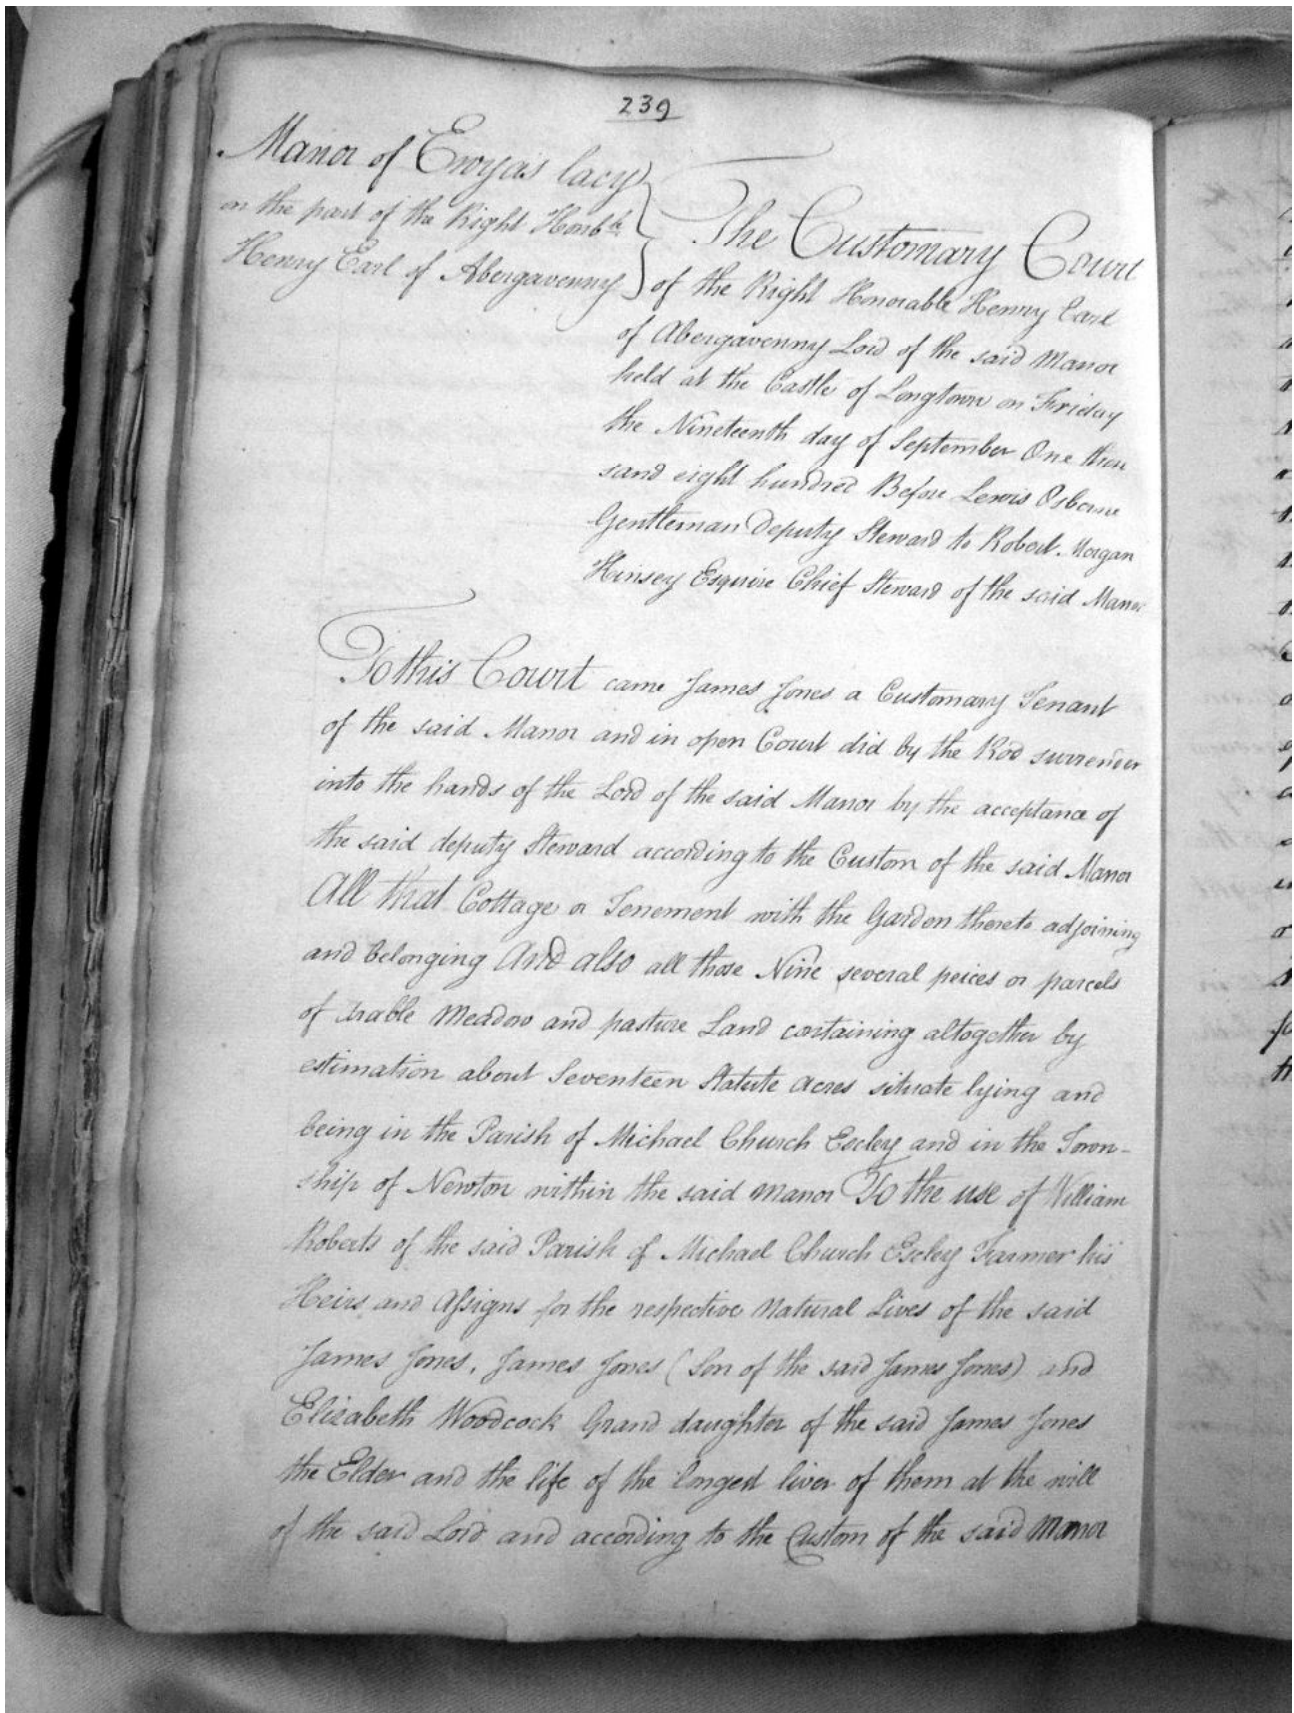 239
Manor of Ewyas lacy
on the part of the Right Honble
Henry Earl of Abergavenny
The Customary Court
of the Right Honorable Henry Earl
of Abergavenny Lord of the said Manor
held at the Castle of Longtown on Friday
the Nineteenth day of September One thou
sand eight hundred Before Lewis Osborne
Gentleman Deputy Steward to Robert Morgan
Kinsey Esquire Chief Steward of the said Manor
To this Court came James Jones a Customary Tenant
of the said Manor and in open Court did by the Rod surrender
into the hands of the Lord of the said Manor by the acceptance of
the said deputy Steward according to the Custom of the said Manor
All that Cottage or Tenement with the Garden thereto adjoining
and belonging And also all those Nine several peices or parcels
of Arable Meadow and pasture Land containing altogether by
estimation about Seventeen Statute Acres situate lying and
being in the Parish of Michael Church Escley and in the Town-
ship of Newton within the said Manor To the use of William
Roberts of the said Parish of Michael Church Escley Farmer his
Heirs and Assigns for the respective Natural Lives of the said
James Jones, James Jones (Son of the said James Jones) and
Elizabeth Woodcock Grand daughter of the said James Jones
the Elder and the life of the longest liver of them at the will
of the said Lord and according to the Custom of the said Manor